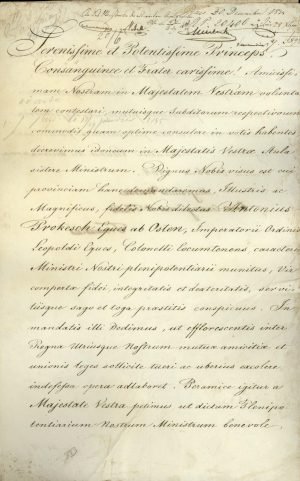 Serenissime et Potentissime Princeps
Consanguinee et Frater carissime. Amicissi-
mam Nostram in Majestatem Vestram volunta-
tem contestari, mutuisque Subditorum respectivorum
commodis quam optime consulere in votis habentes
decrevimus idoneum in Majestatis Vestræ Aula
sistere Ministrum. Dignus Nobis visus est cui
provinciam hanc demandaremus, Illustris ac
Magnificus, fidelis Nobis dilectus Antonius
Prokesch Eques ab Osten, Imperatorii Ordinis
Leopoldi Eques, Colonelli locumtenens caractere
Ministri Nostri plenipotentiarii munitus, Vir
compertæ fidei integritatis et dexteritatis, servi-
tiisque sago et toga præstitis conspicuus. In
mandatis illi Dedimus, ut efflorescentis inter
Regna Utriusque Nostrum mutuæ amicitiæ et
unionis leges sollicite tueri ac uberius excolere
indefessa opera adlaboret. Peramice igitur a
Majestate Vestra petimus ut dictum Plenipo-
tentiarium Nostrum Ministrum benevole